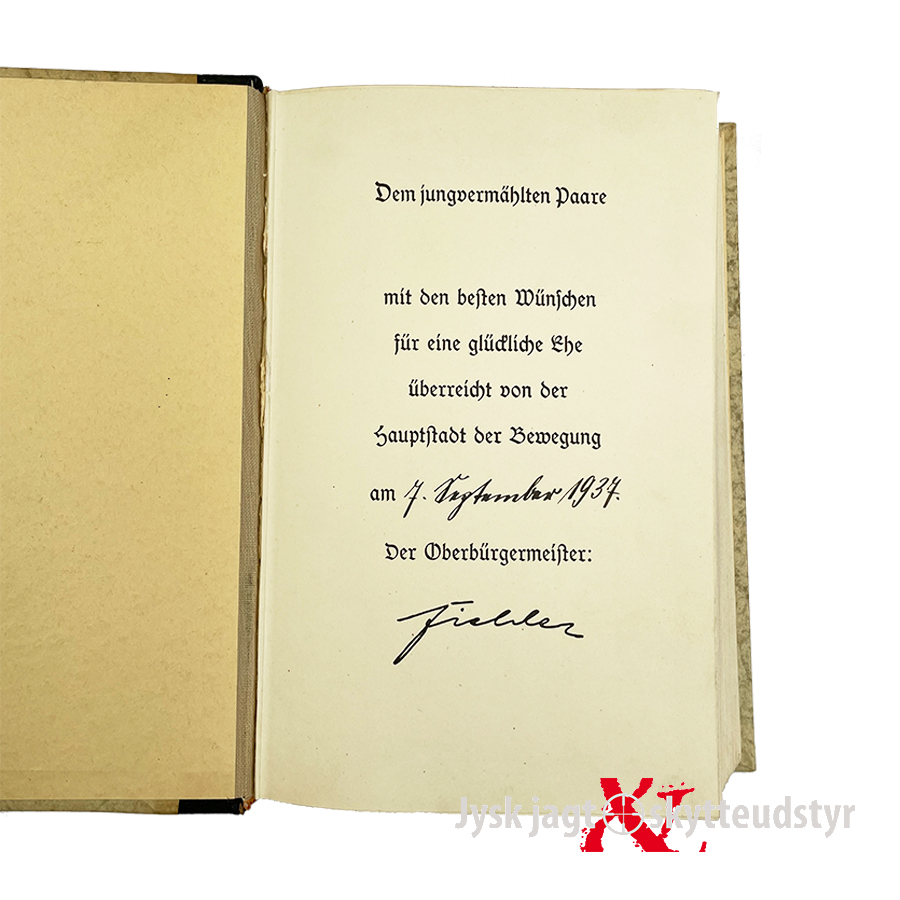 Dem jungvermählten Paare
mit den besten Wünschen
für eine glückliche Ehe
überreicht von der
Hauptstadt der Bewegung
am 7. September 1937.
Der Oberbürgermeister:
Fiehler
Jysk jagt & skytteudstyr
XL